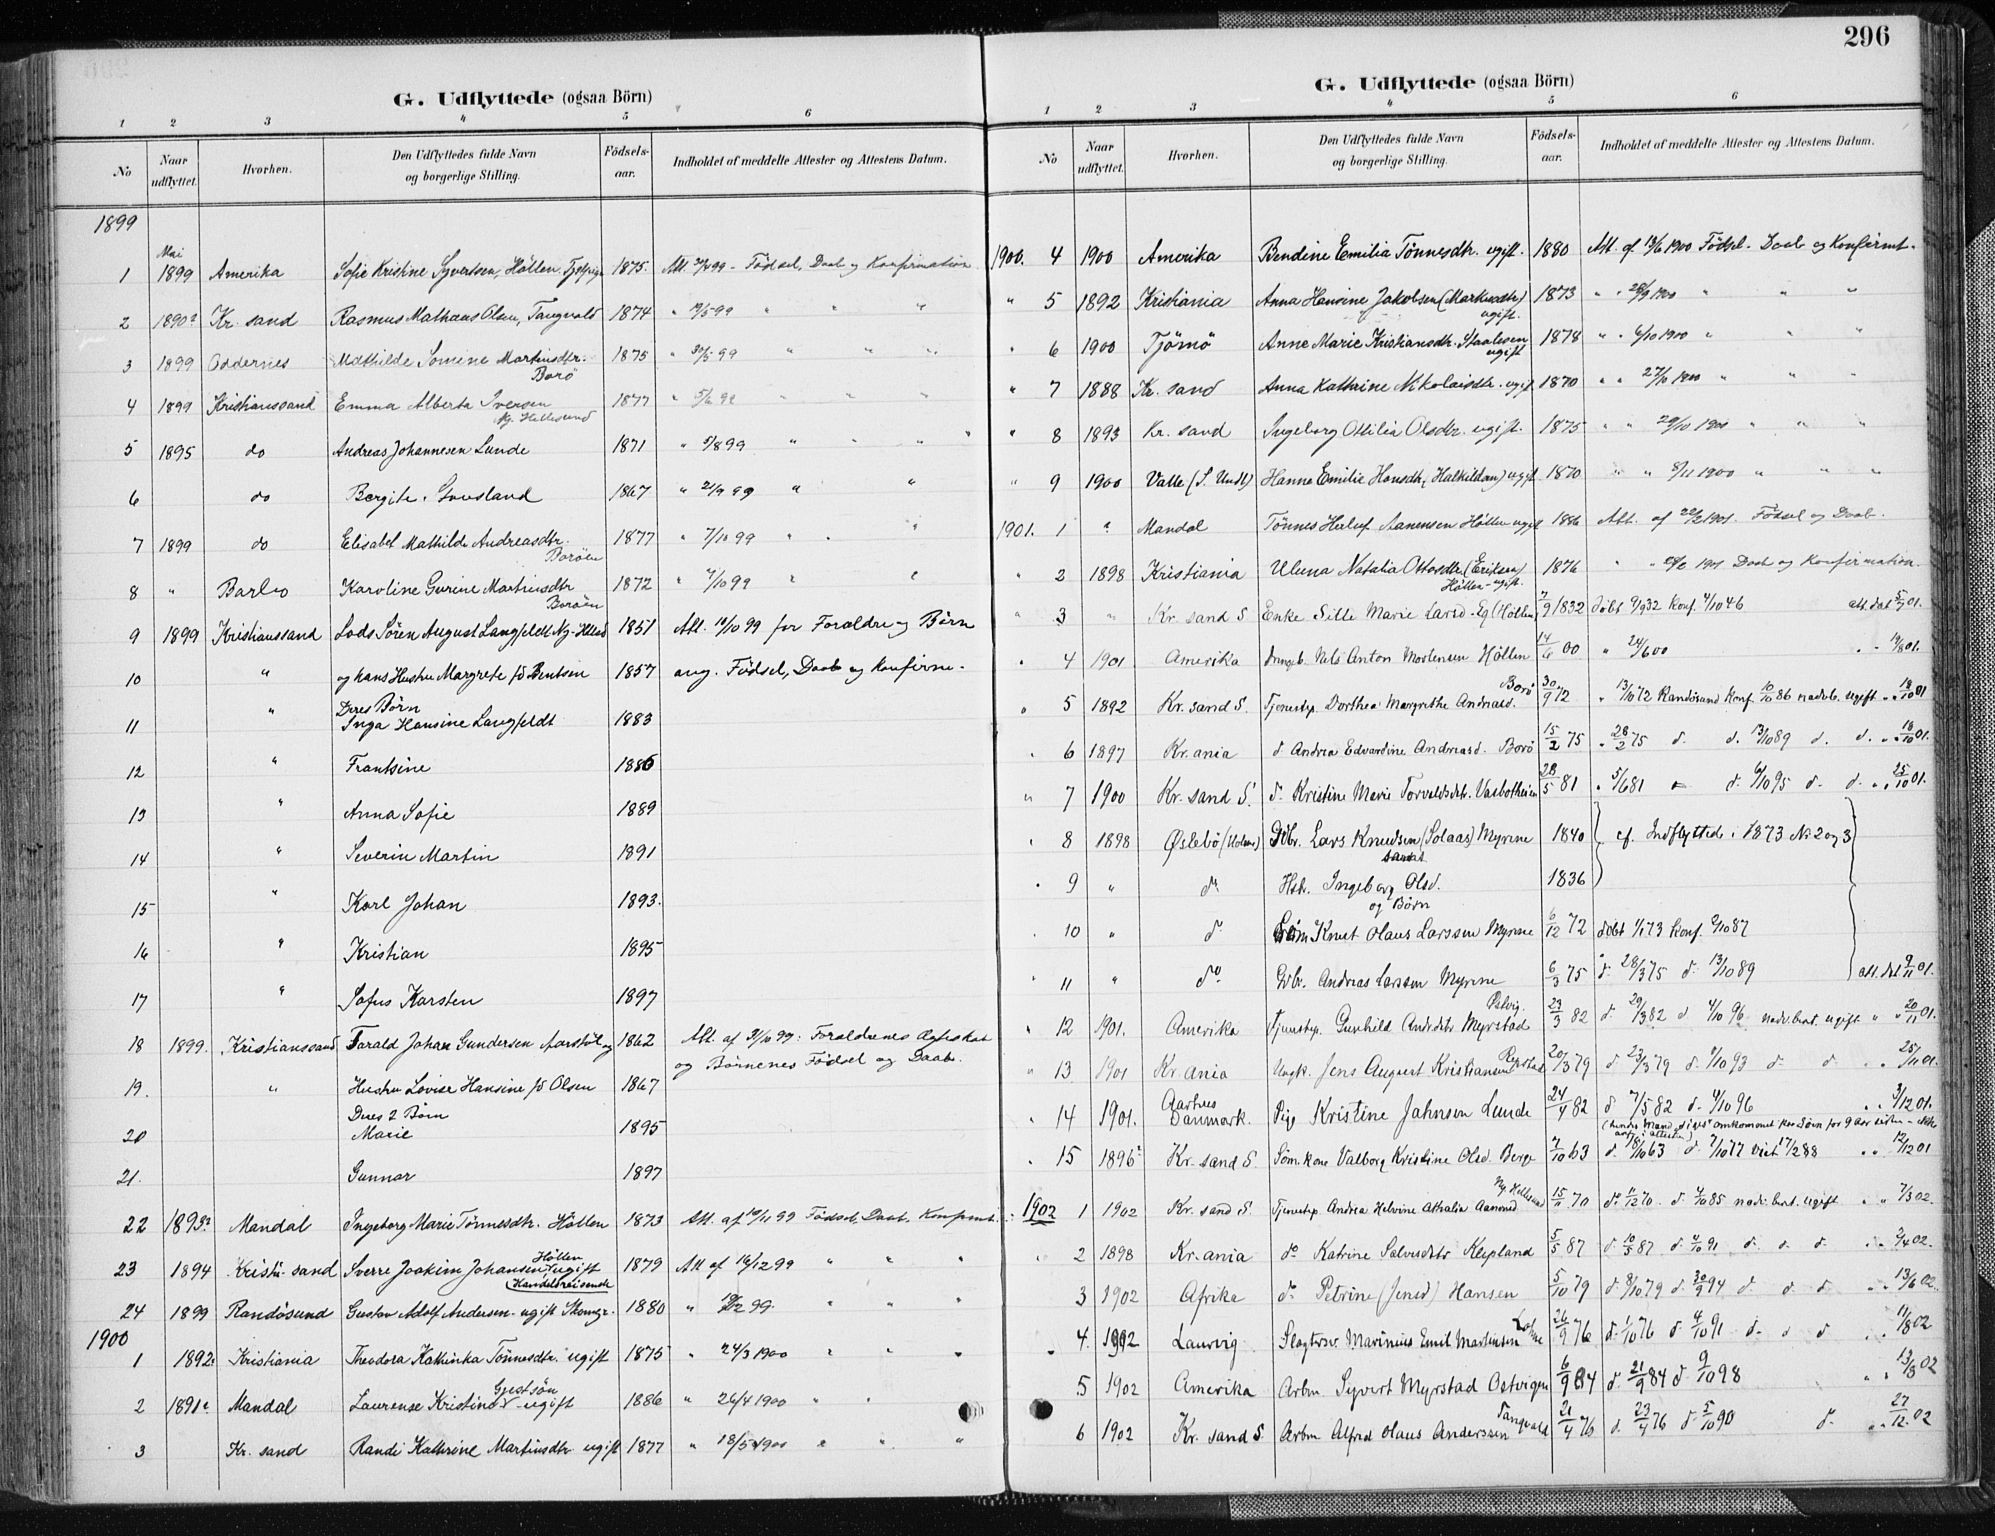 296
G. Udflyttede (ogsaa Börn)
1 2 3 4 5 6
No Naar udflyttet. Hvorhen. Den Udflyttedes fulde Navn og borgerlige Stilling. Födsels-aar. Indholdet af meddelte Attester og Attestens Datum.
1899
1 Mai 1899 Amerika Sofie Kristine Syvertsen, Hölten 1875. Att. 99 - Födsel, Daab og Konfirmation
2 1890? Kr. sand Rasmus Mathaus Olsen, Tangvald 1874 " 19/5 99 " " "
3 1899 Oddernes Mathilde Somine Martinsdtr. Borö 1875 " 30/5 99 " " "
4 1899 Kristianssand Emma Alberta Iversen Ny. Hellesund 1877 " " " "
5 1895 do Andreas Johannesen Lunde 1871 " 5/8 99 " " " "
6 do Bergite 1867 " 21/9 99 " "
7 1899 do Elisabet Mathilde Andreasdtr. Boröen 1877 " 7/10 99 " " "
8 " Barbo Karoline Gurine Martinsdtr Boröen 1872 " 7/10 99 " "
9 1899 Kristianssand Lods Sören August Langfeldt Ny-Hlsd 1851 Att. 10/10 99 for Forældre og Börn
10 " og hans Hustru Margrete fö Bentsen 1857 ang. Födsel, Daab og Konfirm.
11 " Deres Börn Inga Hansine Langfeldt 1883
12 " Frantsine 1886
13 " Anna Sofie 1889
14 " Severin Martin 1891
15 " Karl Johan 1893.
16 " Kristian 1895
17 " Sofus Karsten 1897
18 1899. Kristianssand Tarald Johan Gundersen Aarstöl og 1862 Att. af 31/10 99: Forældrenes Ægteskab
19. " Hustru Lovise Hansine fö Olsen 1867 og Börnenes Födsel og Daab.
20 Deres 2 Börn Marie 1895
21. Gunnar 1897
22 1893? Mandal Ingeborg Marie Tönnesdtr. Höllen 1873 Att. af 10/11 99 Födsel, Daab, Konfirmt.
23 1894 Kristia- sand Sverre Joakim Johansen Höllen ugift Handelsreisende 1879 Att af 16/12 99 " " "
24 1899 Randösund Gustav Adolf Andersen - ugift Skomgr. 1880 " 19/12 99 " " "
1900
1 1892. Kristiania Theodora Kathinka Tönnesdtr. ugift 1875 " 24/3 1900 " " "
2 1891? Mandal Laurense Kristine Gjestsön - ugift 1886 " 26/4 1900 " "
3 Kr. sand Randi Kathrine Martinsdtr ugift 1877 " 18/5 1900 " " "
G. Udflyttede (ogsaa Börn)
1 2 3 4 5 6
No Naar udflyttet. Hvorhen. Den Udflyttedes fulde Navn og borgerlige Stilling. Födsels-aar. Indholdet af meddelte Attester og Attestens Datum.
1900. 4 1900 Amerika Bendine Emilia Tönnesdtr. ugift. 1880 Att. af 13/6 1900 Födsel - Daab og Konfirmt.
" 5 1892 Kristiania Anna Hansine Jakobsen (Markusdtr) ugift. 1873 " " 28/9 1900 " " "
" 6 1900 Tjömö Anne Marie Kristiansdtr. Staalesen ugift 1878 " " 6/10 1900 " " "
" 7 1888 Kr. sand Anna Kathrine Nikolaisdtr. ugift 1870 " " 27/10 1900 " " "
" 8 1893 Kr. sand Ingeborg Ottilia Olsdtr. ugift. 1875 " " 29/10 1900 " " "
" 9 1900 Valle (S. Undl) Hanne Emilie Hansdtr. (Halkildsen) ugift 1870 " " 8/11 1900 " " "
1901. 1 " Mandal Tönnes Herluf Aanensen Höllen ugift 1886 Att. af 22/2 1901. Födsel og Daab.
" 2 1898 Kristiania Uluna Natalia Ottosdtr (Eriksen) Höllen - ugift. 1876 " " 1901 Daab og Konfirmation.
" 3 " Kr. sand S Enke Sille Marie Larsd. Eg (Höllen) 7/9 1832 döbt 9/9 32 Konf. 4/10 46 att. dat 5/7 01.
" 4 1901 Amerika Anton Mortensen Höllen 14/6 00 " 24/6 00 " " 19/8 01.
" 5 1892 Kr. sand S. Tjenestep. Dorthea Margrethe Andreasd. Borö 30/9 72 " 13/10 72 Randösund Konf 10/10 86 nadvb. ugift " " 18/10 01
" 6 1897 Kr.ania do Andrea Edvardine Andreasd. Borö 15/2 75 " 28/2 75 d. d. 13/10 89 d. d. " " 18/10 01.
" 7 1900 Kr. sand S. do Kristine Marie Torvaldsdtr. Vasbotheien 28/5 81 " 5/6 81 d. 6/10 95 d. d. " " 25/10 01.
" 8 1898 Øslebö (Holme) Gbr. Lars Knudsen (Solaas) Myrene samt 1840 cf. Indflyttede i 1873 No 2 og 3
" 9 " do Hst. Ingeborg Olsd. og Börn 1836
" 10 " do Söm. Knut Olaus Larssen Myrene 6/12 72 döbt 1/1 73 konf. 2/10 87
" 11 " do Gbr. Andreas Larssen Myrene 6/3 75 d. 28/3 75 d. 13/10 89 att. dat 9/11 01.
" 12 1901. Amerika Tjenestep. Gunhild Andrdtr Myrstad Østvig. 23/3 82 d. 29/3 82 d 4/10 96 nadv. bert. ugift " " 20/11 01.
" 13 1901 Kr.ania Ungk. Jens August Kristiansen Repstad 20/3 79 d 23/3 79 d. 1/10 93 d. d " " 25/11 01.
" 14 1901. Aarhus Danmark. Pige Kristine Jahnsen Lunde 24/4 82 d 7/5 82 d. 4/10 96 " " 3/12 01.
(hendes Mand siges omkommet paa Söen for 9 aar siden - ikke anf. i attesten)
" 15 1896? Kr. sand S. Söm.kone Valborg Kristine Olsd. Berge 7/10 63 d. 18/10 63 d 7/10 77 viet 17/2 88 " " 12/12 01
1902 1 1902 Kr. sand S. Tjenestep. Andrea Helvine Athalia Aanensd Ny Hellesund 15/11 70 do 11/12 70 d. 4/10 85 nadv. bert. ugift " " 7/3 02.
" 2 1898 Kr.ania do Katrine Salvesdtr Klepland 5/5 87 d. 10/5 87 d. 4/10 91 d. d. d. " " 2/4 02.
3 1902 Afrika do Petrine (Jensd) Hansen 5/10 79 d 8/10 79 d. 30/9 94 d. d. d. " " 13/6 02.
" 4. 1902 Laurvig Slagtersv. Marinius Emil Martinsen 26/9 76 d. 1/10 76 d. 4/10 91 d. d d " 11/8 02
5 1902 Amerika Arbm Syvert Myrstad Ostvigen 6/9 84 d. 21/9 84 d 9/10 98 " " 13/8 02
6 1902 Kr. sand S. Arbm Alfred Olaus Anderssen Tangvald 21/4 76 d. 23/4 76 d 5/10 90 d. " " 27/12 02